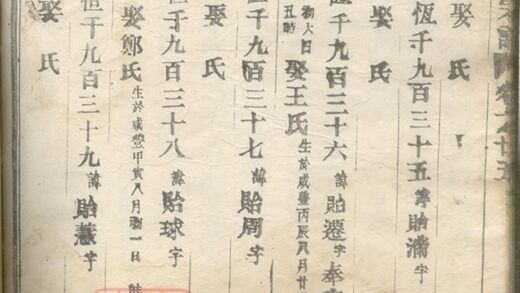 譜 卷之十五
娶 氏
恆千九百三十五 諱 貽滿 字
娶 氏
恆千九百三十六 諱 貽遷 字 奉
初六日 五時 娶王氏 生於咸豐丙辰八月廿
千九百三十七 諱 貽周 字
娶 氏
千九百三十八 諱 貽球 字
娶鄭氏 生於咸豐甲寅八月初一日
恆千九百三十九 諱 貽慧 字
娶 氏